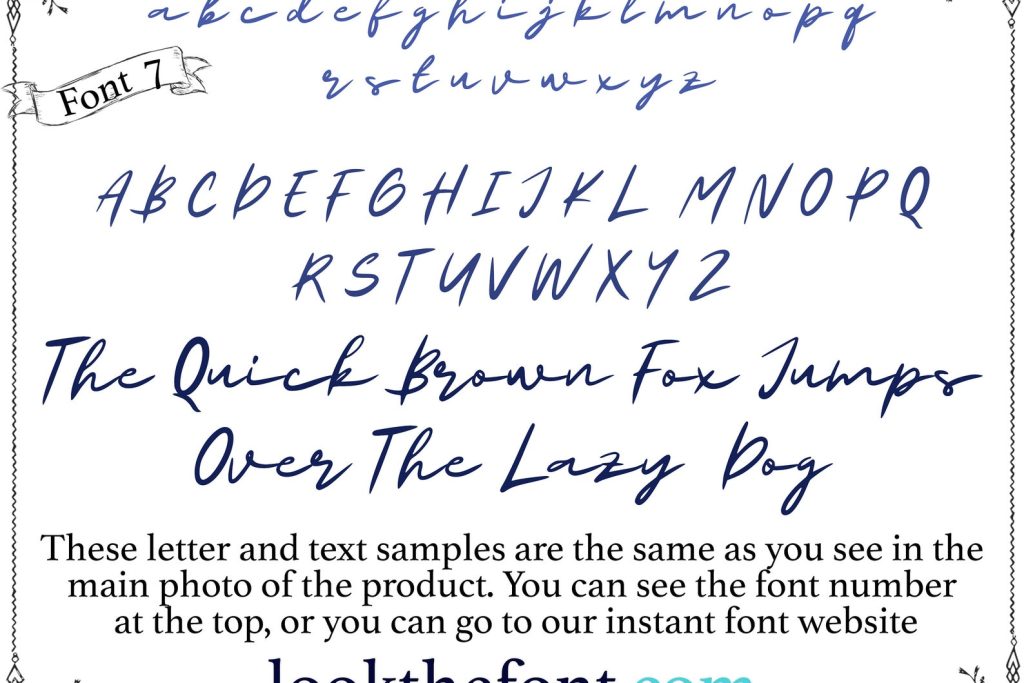 a b c d e f g h i j k l m n o p q
r s t u v w x y z
Font 7
A B C D E F G H I J K L M N O P Q
R S T U V W X Y Z
The Quick Brown Fox Jumps
Over The Lazy Dog
These letter and text samples are the same as you see in the
main photo of the product. You can see the font number
at the top, or you can go to our instant font website
lookthefont.com